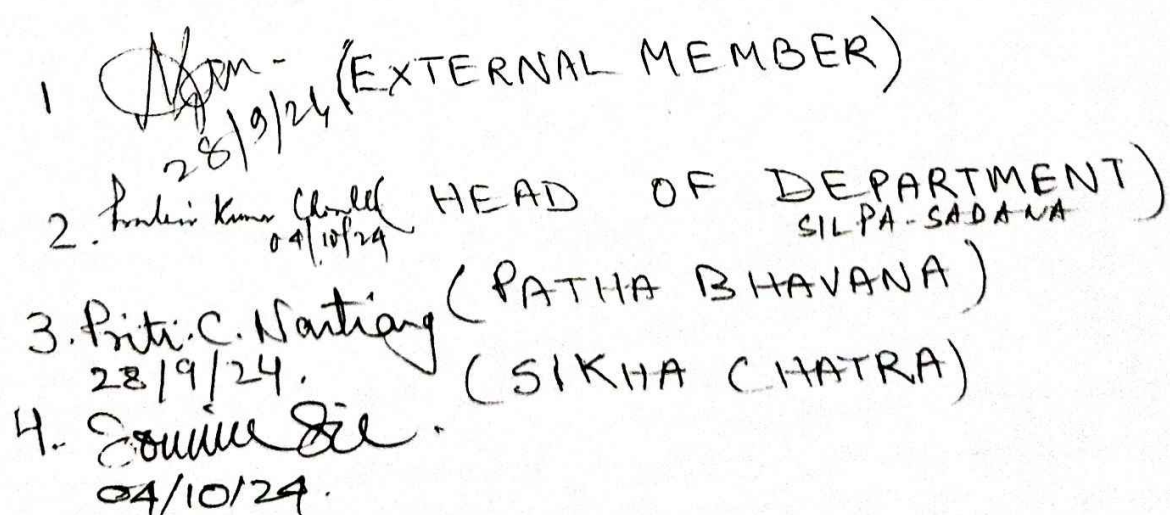 1 (EXTERNAL MEMBER)
28/9/24
2. Kumar HEAD OF DEPARTMENT)
04/10/24 SILPA-SADANA
3. Priti. C. Nartiang (PATHA BHAVANA)
28/9/24. (SIKHA CHATRA)
4.
04/10/24.